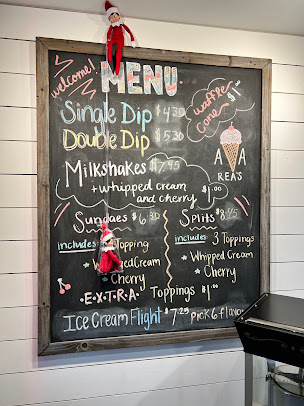 welcome!
MENU
waffle cone $1.00
Single Dip $4.30
Double Dip $5.30
Milkshakes $7.95
+ whipped cream and cherry $1.00
A A
REA'S
Sundaes $6.30
Splits $8.45
includes: Topping
includes: 3 Toppings
Whipped Cream
Whipped Cream
Cherry
Cherry
EXTRA Toppings $1.00
Ice Cream Flight $7.25 pick 6 flavo